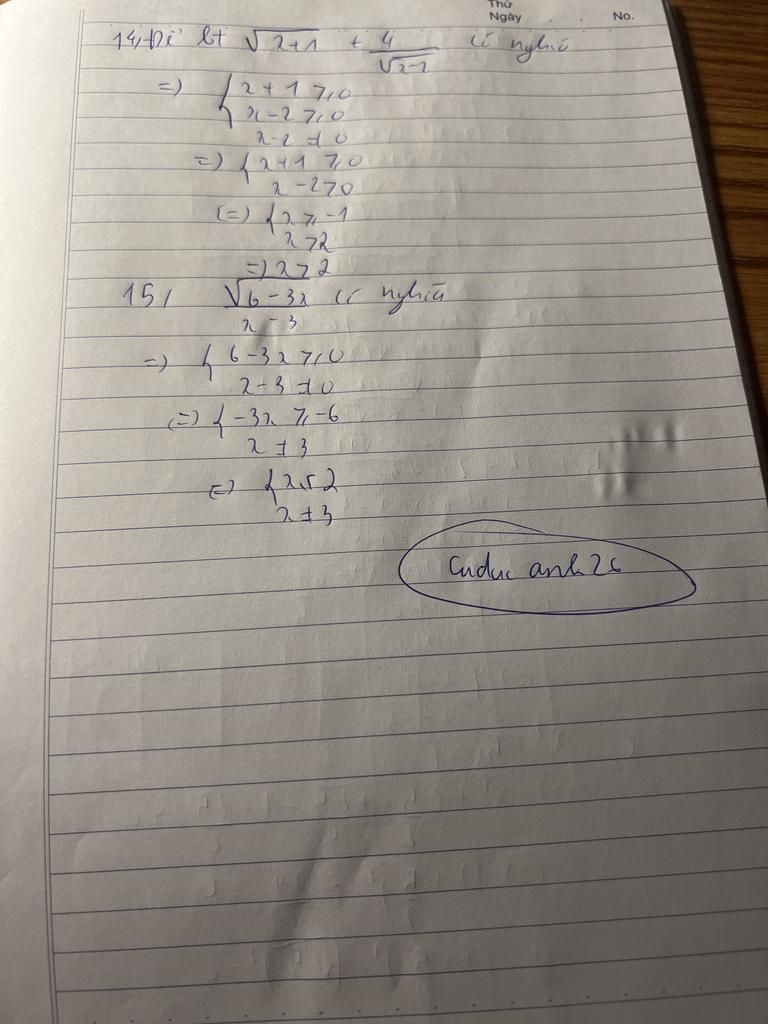 Thứ
Ngày . . No.
14, Để bt √x+1 + 4/√x-2 có nghĩa
=> { x + 1 ≥ 0
x - 2 ≥ 0
x - 2 ≠ 0
=> { x + 1 ≥ 0
x - 2 > 0
(=) { x ≥ -1
x > 2
=> x > 2
15, √6 - 3x / x - 3 có nghĩa
=> { 6 - 3x ≥ 0
x - 3 ≠ 0
(=) { -3x ≥ -6
x ≠ 3
(=) { x ≤ 2
x ≠ 3
anh 26